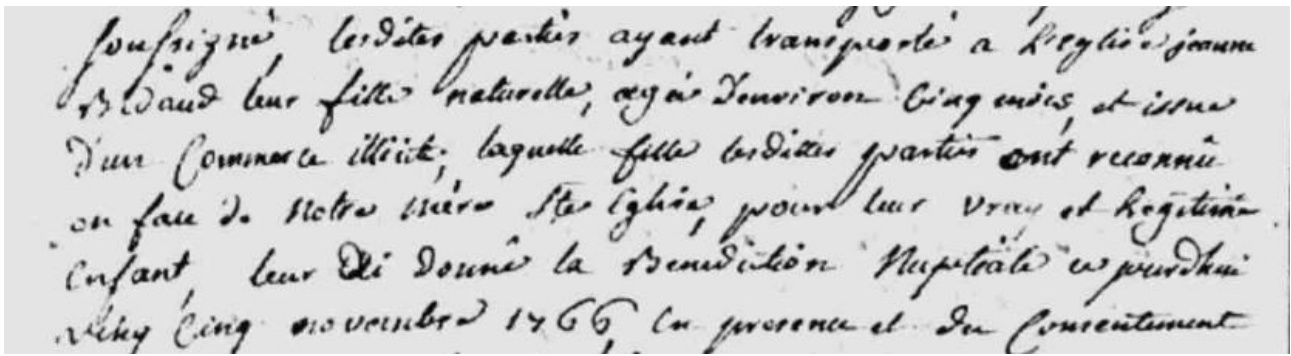 soussigné, lesdites parties ayant transporté a l'eglise jeanne
Bidaud leur fille naturelle, agée d'environ cinq mois, et issue
d'un Commerce illicite, laquelle fille lesdittes parties ont reconnû
en face de Notre mère Ste Eglise, pour leur vray et Legitime
Enfant, leur ai donné la Benediction Nuptiale ce jourdhui
cinq novembre 1766, en presence et du Consentement